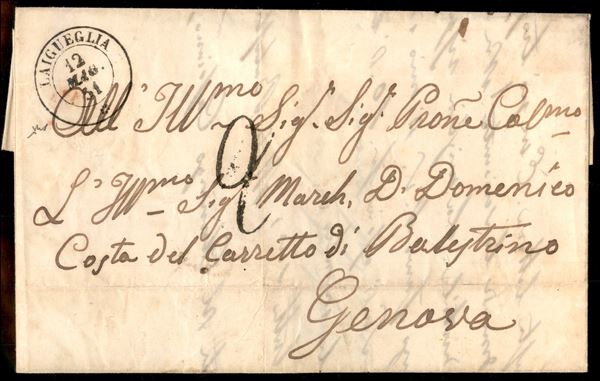 LAIGUEGLIA
12
MAG.
51
All' Ill.mo Sig.r Sig.r Proñe Col.mo
2
L'Ill.mo Sig.r March. D. Domenico
Costa del Carretto di Balestrino
Genova